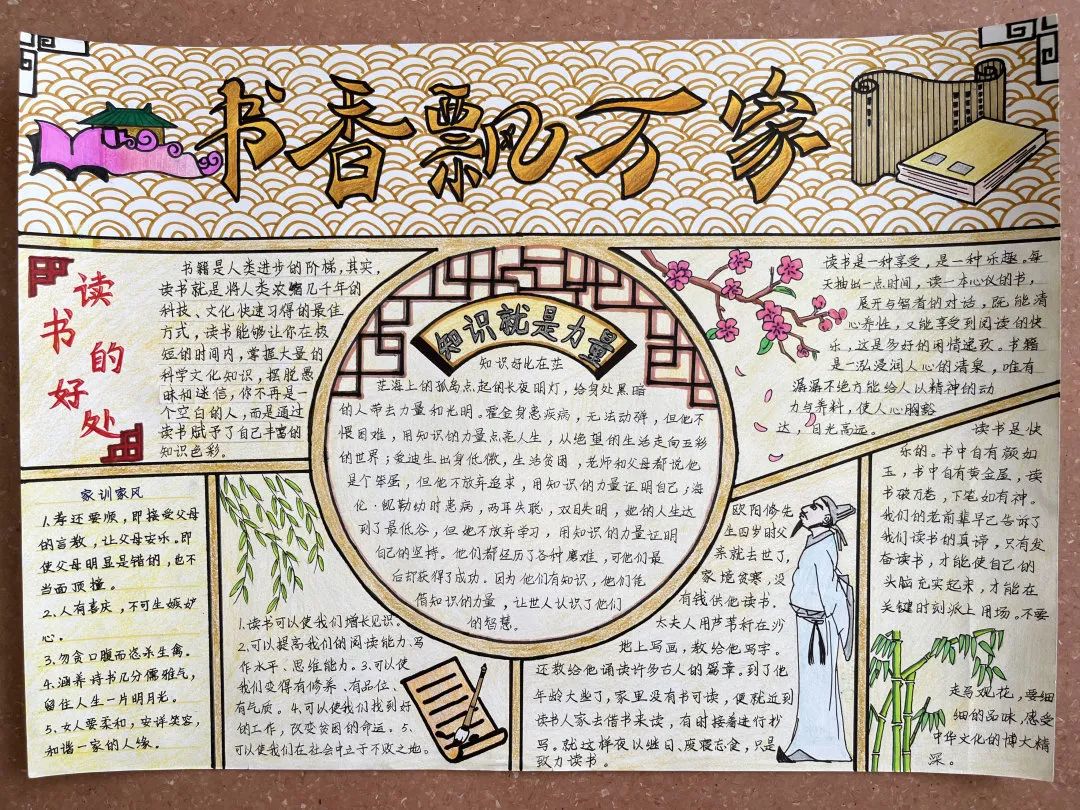 书香飘万家
读书的好处
书籍是人类进步的阶梯,其实,
读书就是将人类浓缩几千年的
科技、文化快速习得的最佳
方式,读书能够让你在极
短的时间内,掌握大量的
科学文化知识,摆脱愚
昧和迷信,你不再是一
个空白的人,而是通过
读书赋予了自己丰富的
知识色彩。
知识就是力量
知识好比在茫
茫海上的孤岛点起的长夜明灯,给身处黑暗
的人带去力量和光明。霍金身患疾病,无法动弹,但他不
惧困难,用知识的力量点亮人生,从绝望的生活走向五彩
的世界;爱迪生出身低微,生活贫困,老师和父母都说他
是个笨蛋,但他不放弃追求,用知识的力量证明自己;海
伦·凯勒幼时患病,两耳失聪,双目失明,她的人生达
到了最低谷,但她不放弃学习,用知识的力量证明
自己的坚持。他们都经历了各种磨难,可他们最
后却获得了成功。因为他们有知识,他们凭
借知识的力量,让世人认识了他们
的智慧。
读书是一种享受,是一种乐趣,每
天抽出一点时间,读一本心仪的书,
展开与智者的对话,既能清
心养性,又能享受到阅读的快
乐,这是多好的闲情逸致。书籍
是一泓浸润人心的清泉,唯有
潺潺不绝方能给人以精神的动
力与养料,使人心胸豁
达,目光高远。
家训家风
1.孝还要顺,即接受父母
的言教,让父母安乐。即
使父母明显是错的,也不
当面顶撞。
2.人有喜庆,不可生嫉妒
心。
3.勿贪口腹而恣杀生禽。
4.涵养诗书几分儒雅气,
留住人生一片明月光。
5.女人要柔和,安详笑容,
和谐一家的人缘。
1.读书可以使我们增长见识。
2.可以提高我们的阅读能力、写
作水平、思维能力。3.可以使
我们变得有修养、有品位、
有气质。4.可以使我们找到好
的工作,改变贫困的命运。5、
可以使我们在社会中立于不败之地。
欧阳修先
生四岁时父
亲就去世了,
家境贫寒,没
有钱供他读书。
太夫人用芦苇秆在沙
地上写画,教给他写字。
还教给他诵读许多古人的篇章。到了他
年龄大些了,家里没有书可读,便就近到
读书人家去借书来读,有时接着进行抄
写。就这样夜以继日、废寝忘食,只是
致力读书。
读书是快
乐的。书中自有颜如
玉,书中自有黄金屋,读
书破万卷,下笔如有神。
我们的老前辈早已告诉了
我们读书的真谛,只有发
奋读书,才能使自己的
头脑充实起来,才能在
关键时刻派上用场。不要
走马观花,要细
细的品味,感受
中华文化的博大精
深。